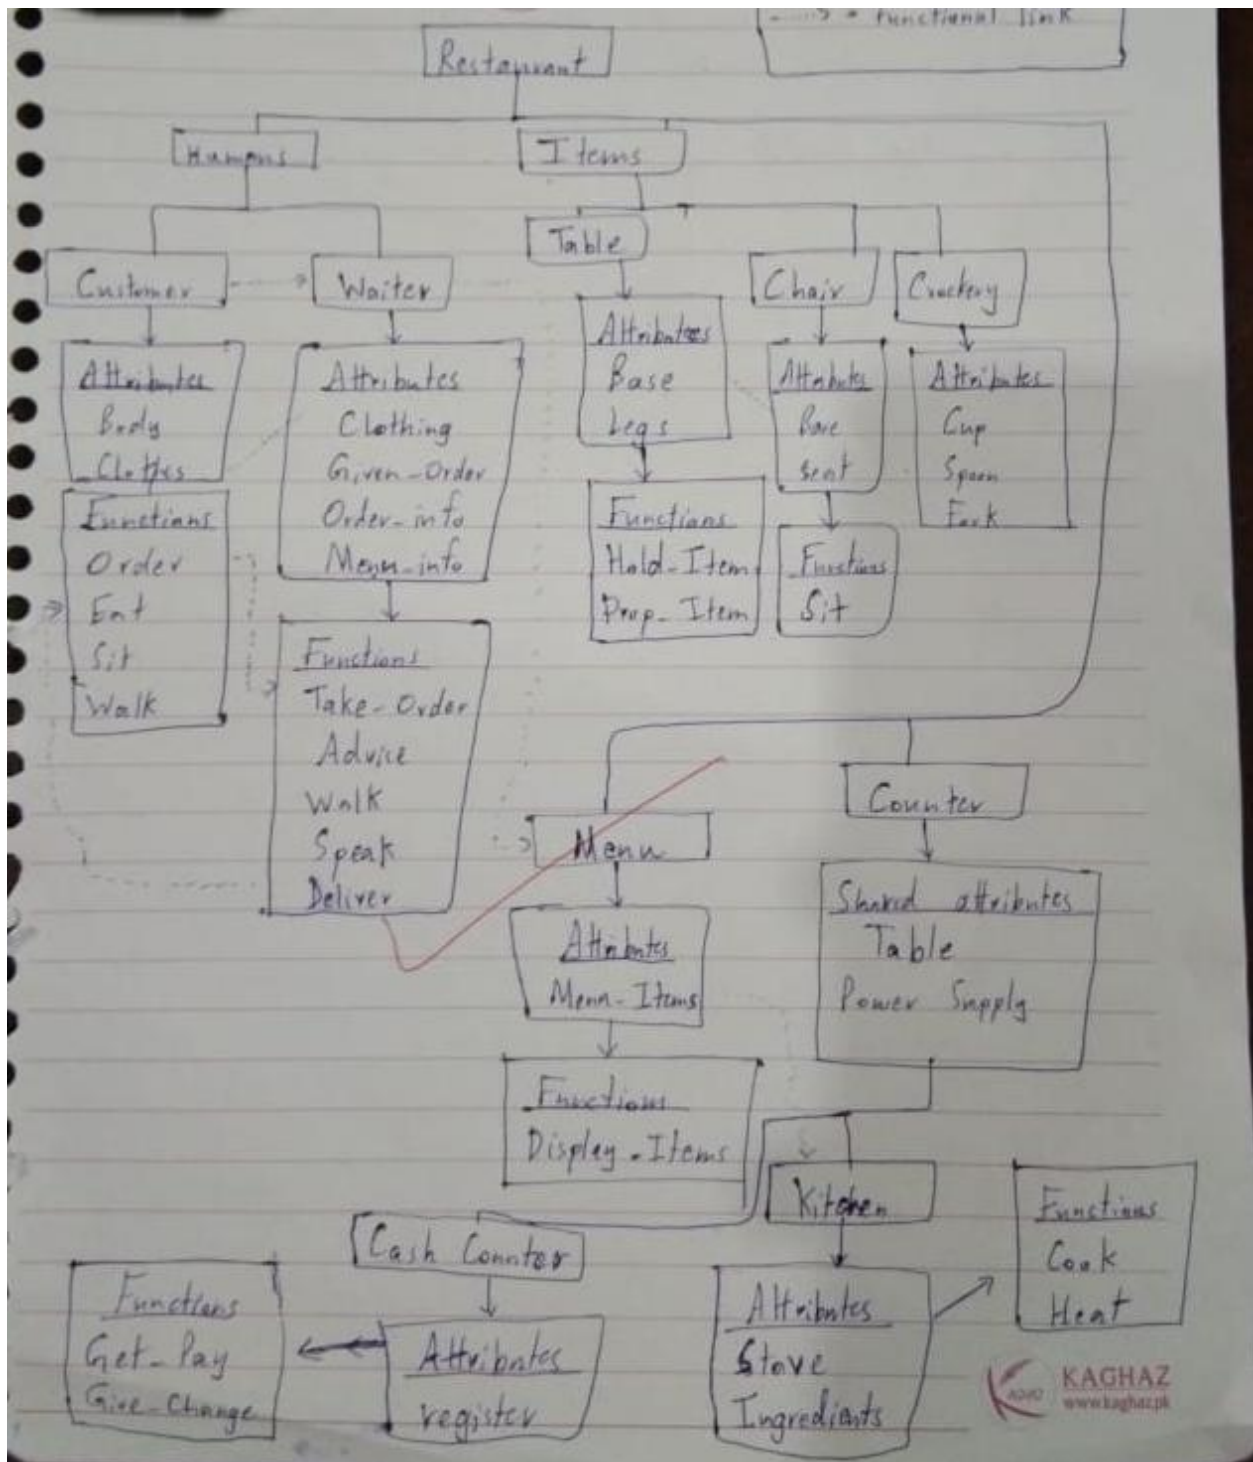 ---> = functional link
Restaurant
Humans
Items
Customer
Waiter
Table
Chair
Crockery
Attributes
Body
Clothes
Functions
Order
Eat
Sit
Walk
Attributes
Clothing
Given-Order
Order-info
Menu-info
Functions
Take-Order
Advice
Walk
Speak
Deliver
Attributes
Base
Legs
Functions
Hold-Item
Drop-Item
Attributes
Base
seat
Functions
Sit
Attributes
Cup
Spoon
Fork
Menu
Attributes
Menu-Items
Functions
Display-Items
Counter
Shared attributes
Table
Power Supply
Cash Counter
Attributes
register
Functions
Get-Pay
Give-Change
Kitchen
Attributes
Stove
Ingredients
Functions
Cook
Heat
KAGHAZ
www.kaghaz.pk